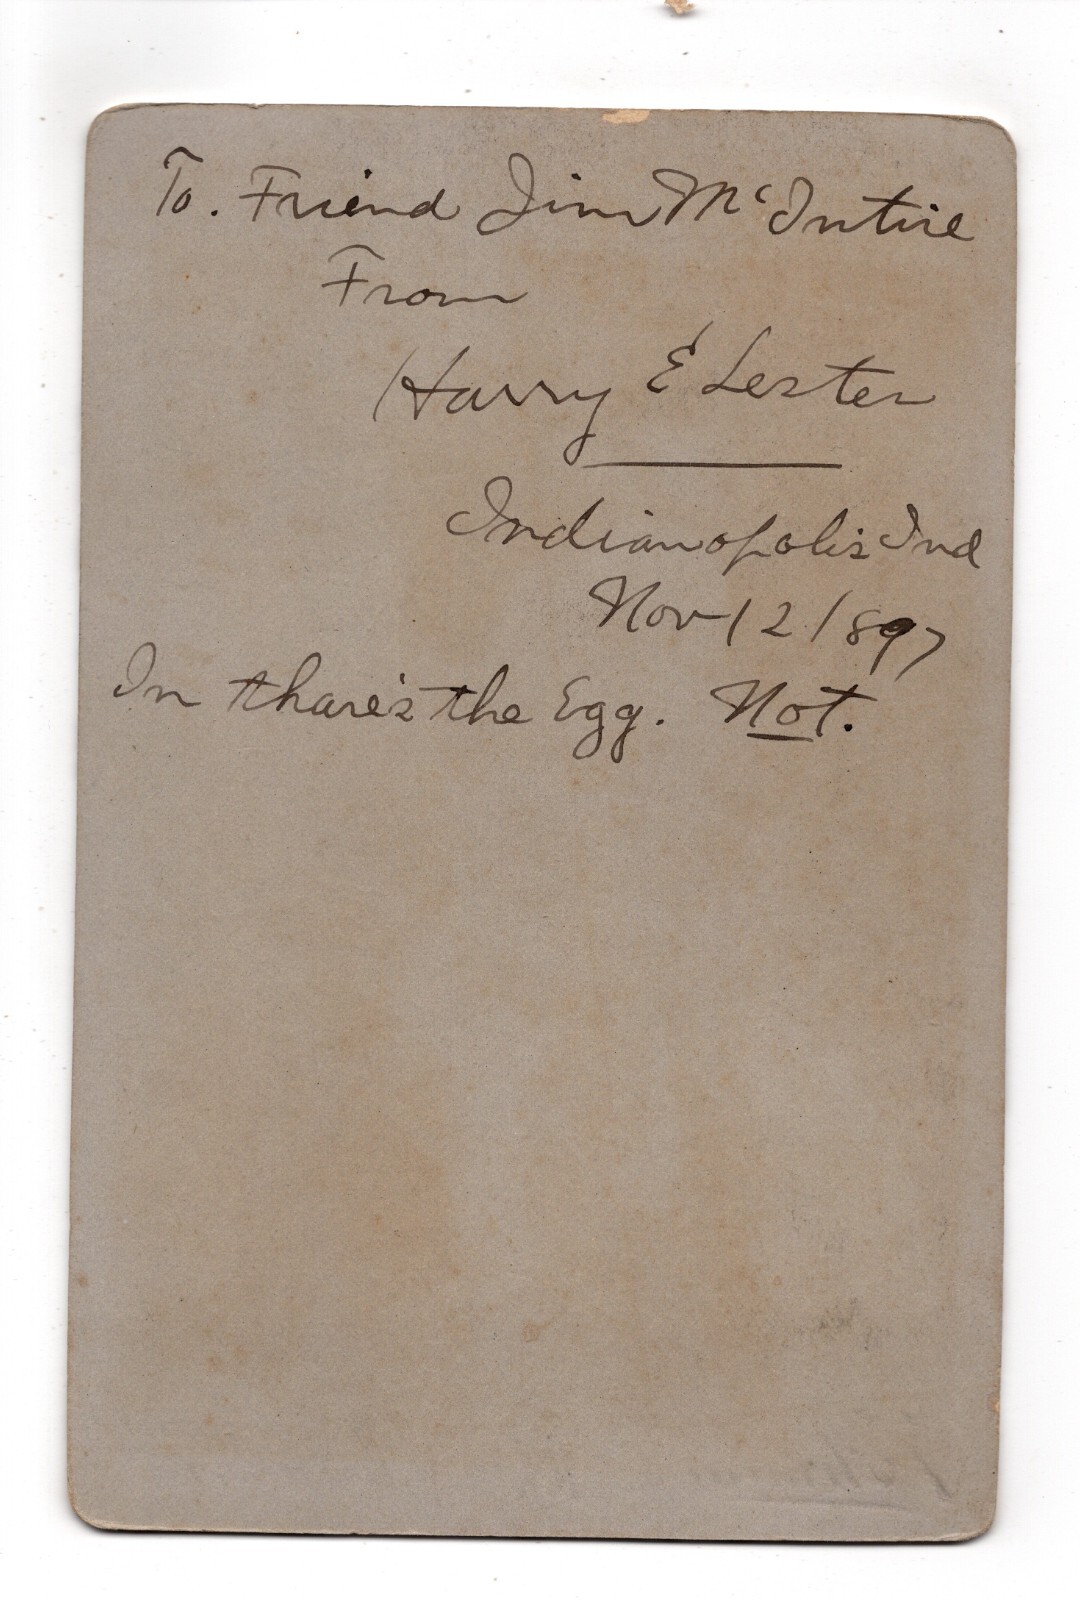 To. Friend Jim McIntire
From
Harry E Lester
Indianapolis Ind
Nov 12/897
In thare's the Egg. Not.